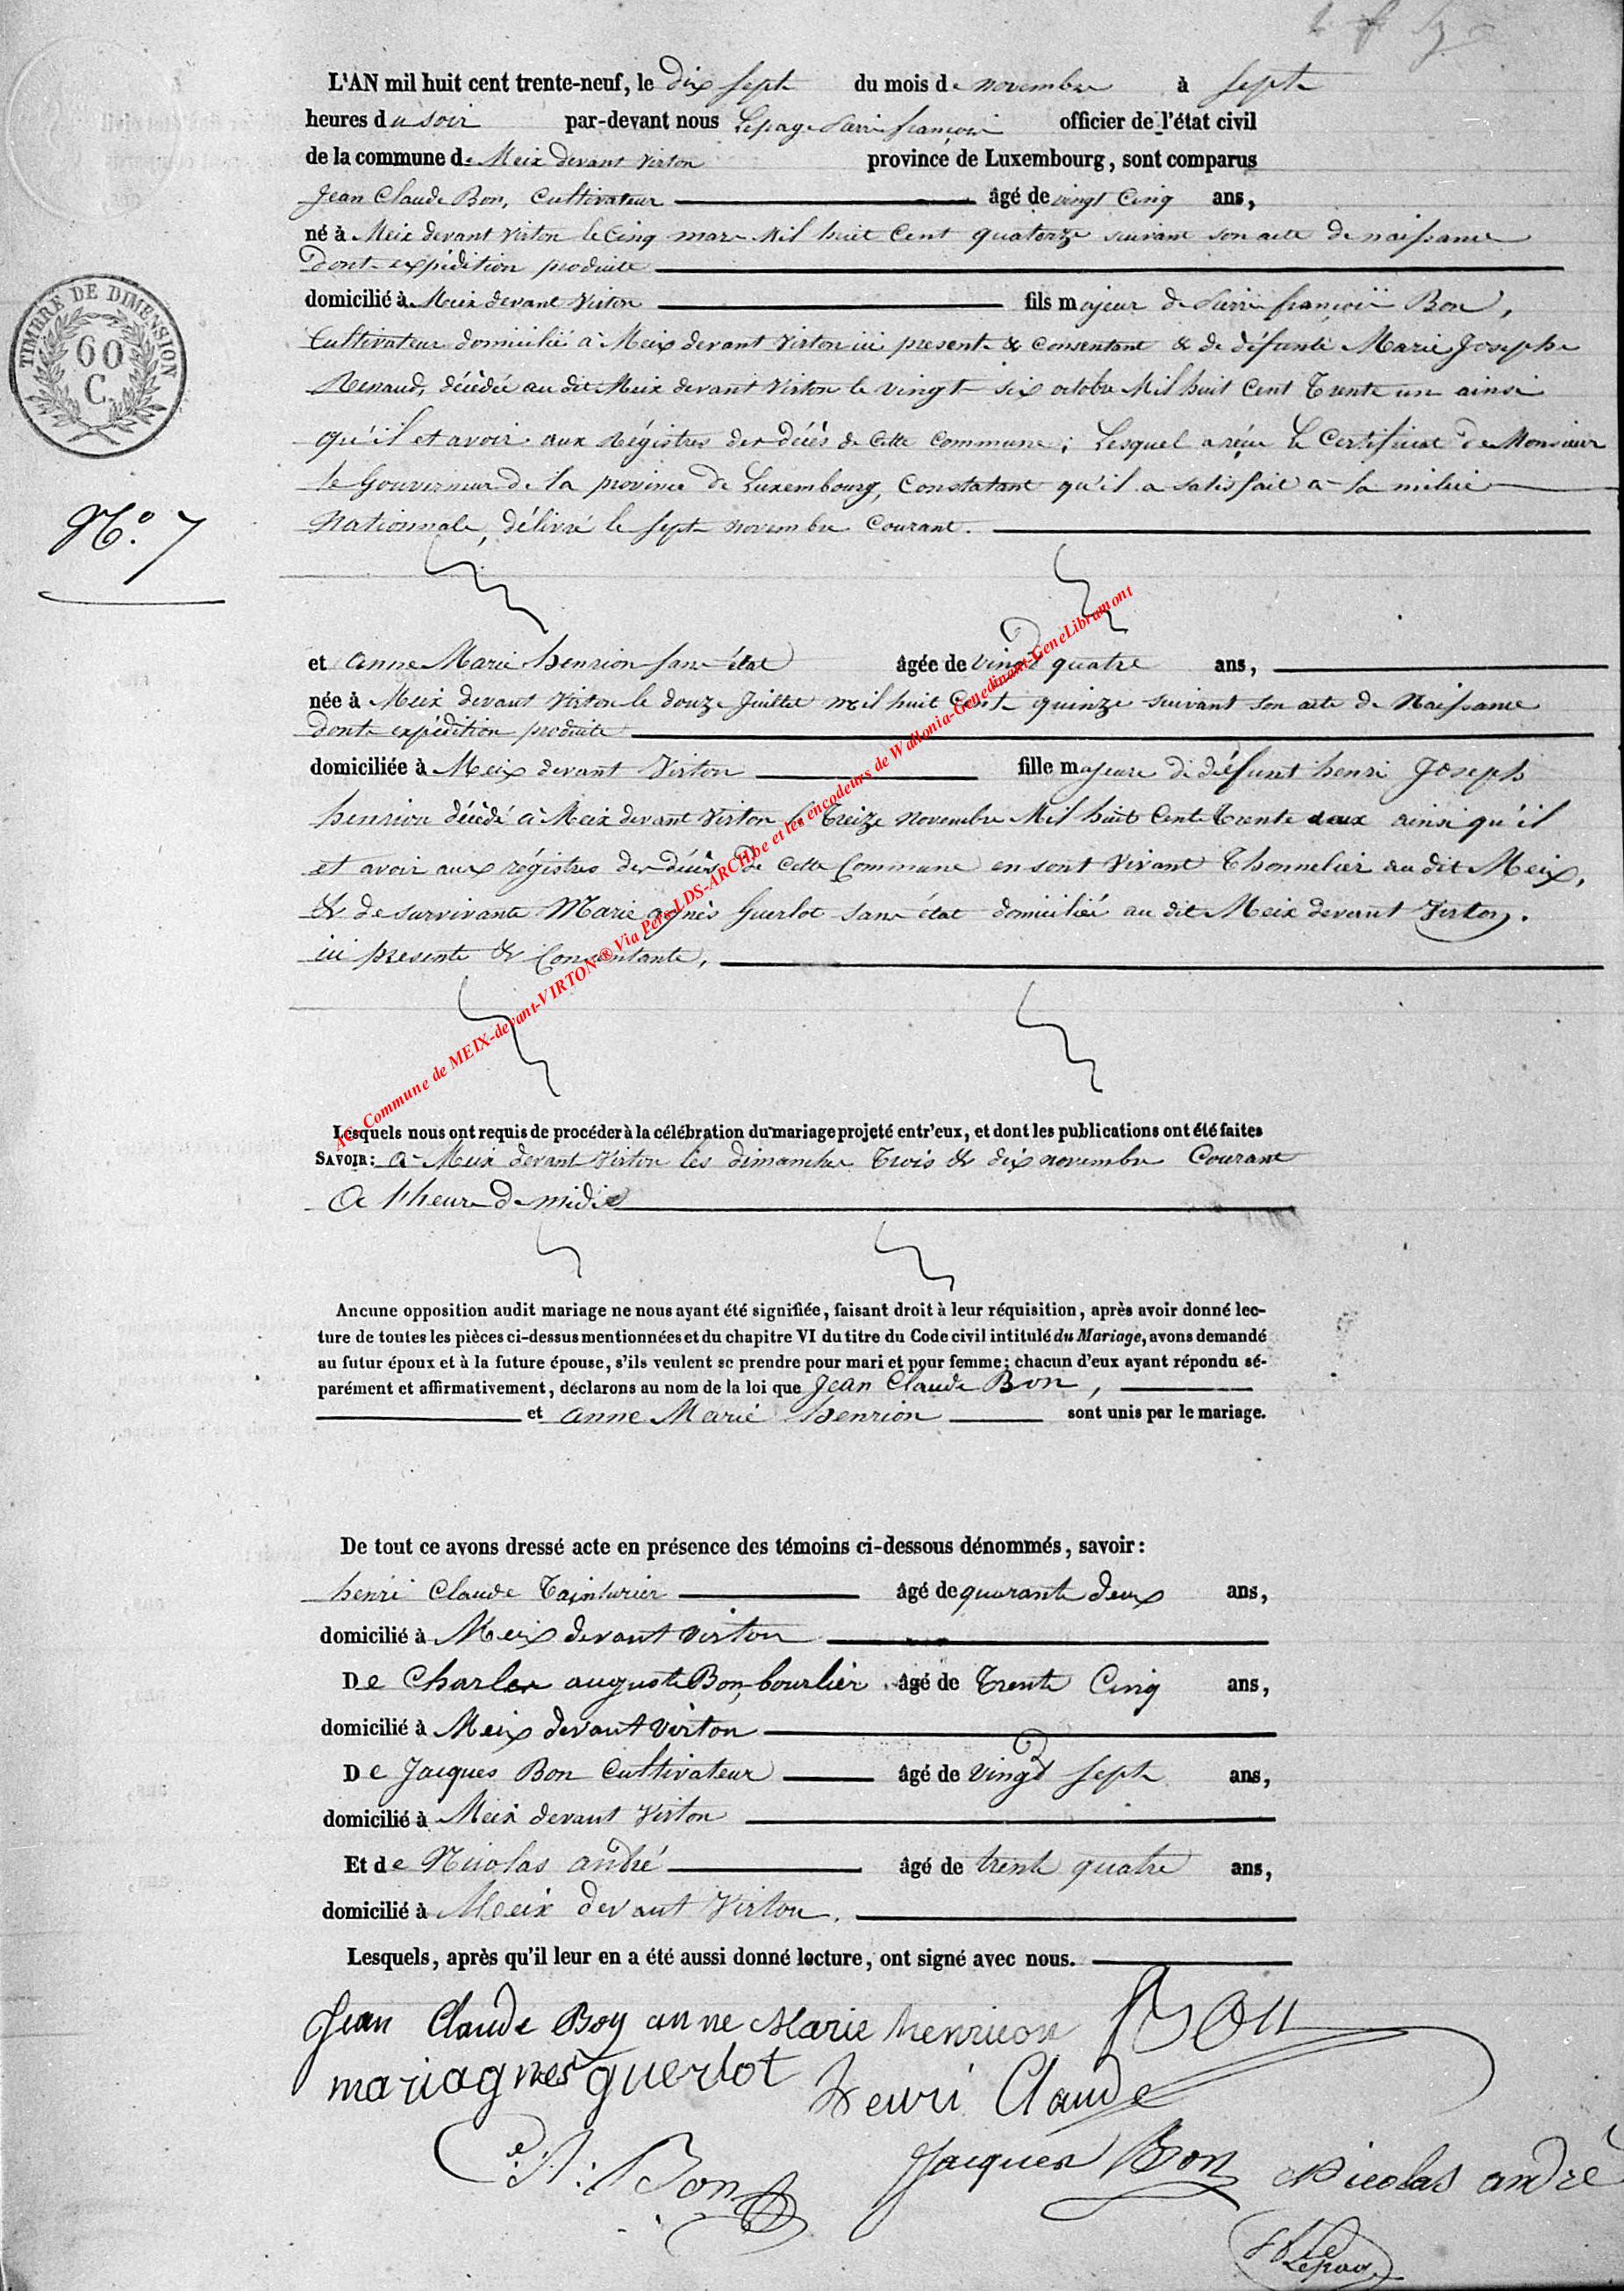 L'AN mil huit cent trente-neuf, le dix sept du mois de novembre à sept
heures du soir par-devant nous Lepage Pierre françois officier de l'état civil
de la commune de Meix devant Virton province de Luxembourg, sont comparus
Jean Claude Bon, Cultivateur âgé de vingt Cinq ans,
né à Meix devant Virton le Cinq mars Mil huit Cent quatorze suivant son acte de naissance
dont expédition produite
domicilié à Meix devant Virton fils majeur de Pierre françois Bon,
TIMBRE DE DIMENSION
60
C.
Cultivateur domicilié à Meix devant Virton ici present & Consentant & de défunte Marie Joseph
Renaud, décédée au dit Meix devant Virton le vingt six octobre Mil huit Cent Trente un ainsi
qu'il et avoir aux Régistres des décès de Cette Commune; Lesquel a reçu Le Certificat de Monsieur
le Gouverneur de la province de Luxembourg, Constatant qu'il a satisfait a la milice
N.° 7
Nationnale, délivré le sept novembre Courant.
et anne Marie henrion sans état âgée de vingt quatre ans,
née à Meix devant Virton le douze Juillet mil huit Cent quinze suivant son acte de Naissance
dont expédition produite
domiciliée à Meix devant Virton fille majeure de défunt henri Joseph
henrion décédé à Meix devant Virton le Treize novembre Mil huit Cent Trente deux ainsi qu'il
et avoir aux régistres des décès de Cette Commune en sont Vivant Thonnelier au dit Meix,
& de survivante Marie agnès Guerlot sans état domiciliée au dit Meix devant Virton.
ici presente & Consentante,
AG-Commune de MEIX-devant-VIRTON ® Via Pers-LDS-ARCH.be et les encodeurs de Wallonia-Genedinant-GeneLibramont
Lesquels nous ont requis de procéder à la célébration du mariage projeté entr'eux, et dont les publications ont été faites
SAVOIR: a Meix devant Virton les dimanches Trois & dix novembre Courant
a l'heure de midi
Aucune opposition audit mariage ne nous ayant été signifiée, faisant droit à leur réquisition, après avoir donné lec-
ture de toutes les pièces ci-dessus mentionnées et du chapitre VI du titre du Code civil intitulé du Mariage, avons demandé
au futur époux et à la future épouse, s'ils veulent se prendre pour mari et pour femme; chacun d'eux ayant répondu sé-
parément et affirmativement, déclarons au nom de la loi que Jean Claude Bon,
et anne Marie henrion sont unis par le mariage.
De tout ce avons dressé acte en présence des témoins ci-dessous dénommés, savoir:
henri Claude Tainturier âgé de quarante deux ans,
domicilié à Meix devant Virton
De Charles auguste Bon, bourlier âgé de Trente Cinq ans,
domicilié à Meix devant Virton
De Jacques Bon Cultivateur âgé de vingt sept ans,
domicilié à Meix devant Virton
Et de Nicolas andré âgé de trente quatre ans,
domicilié à Meix devant Virton.
Lesquels, après qu'il leur en a été aussi donné lecture, ont signé avec nous.
Jean Claude Bon anne Marie henrion Bon
mariagnes guerlot henri Claude
Bon Jacques Bon Nicolas andré
Lepage